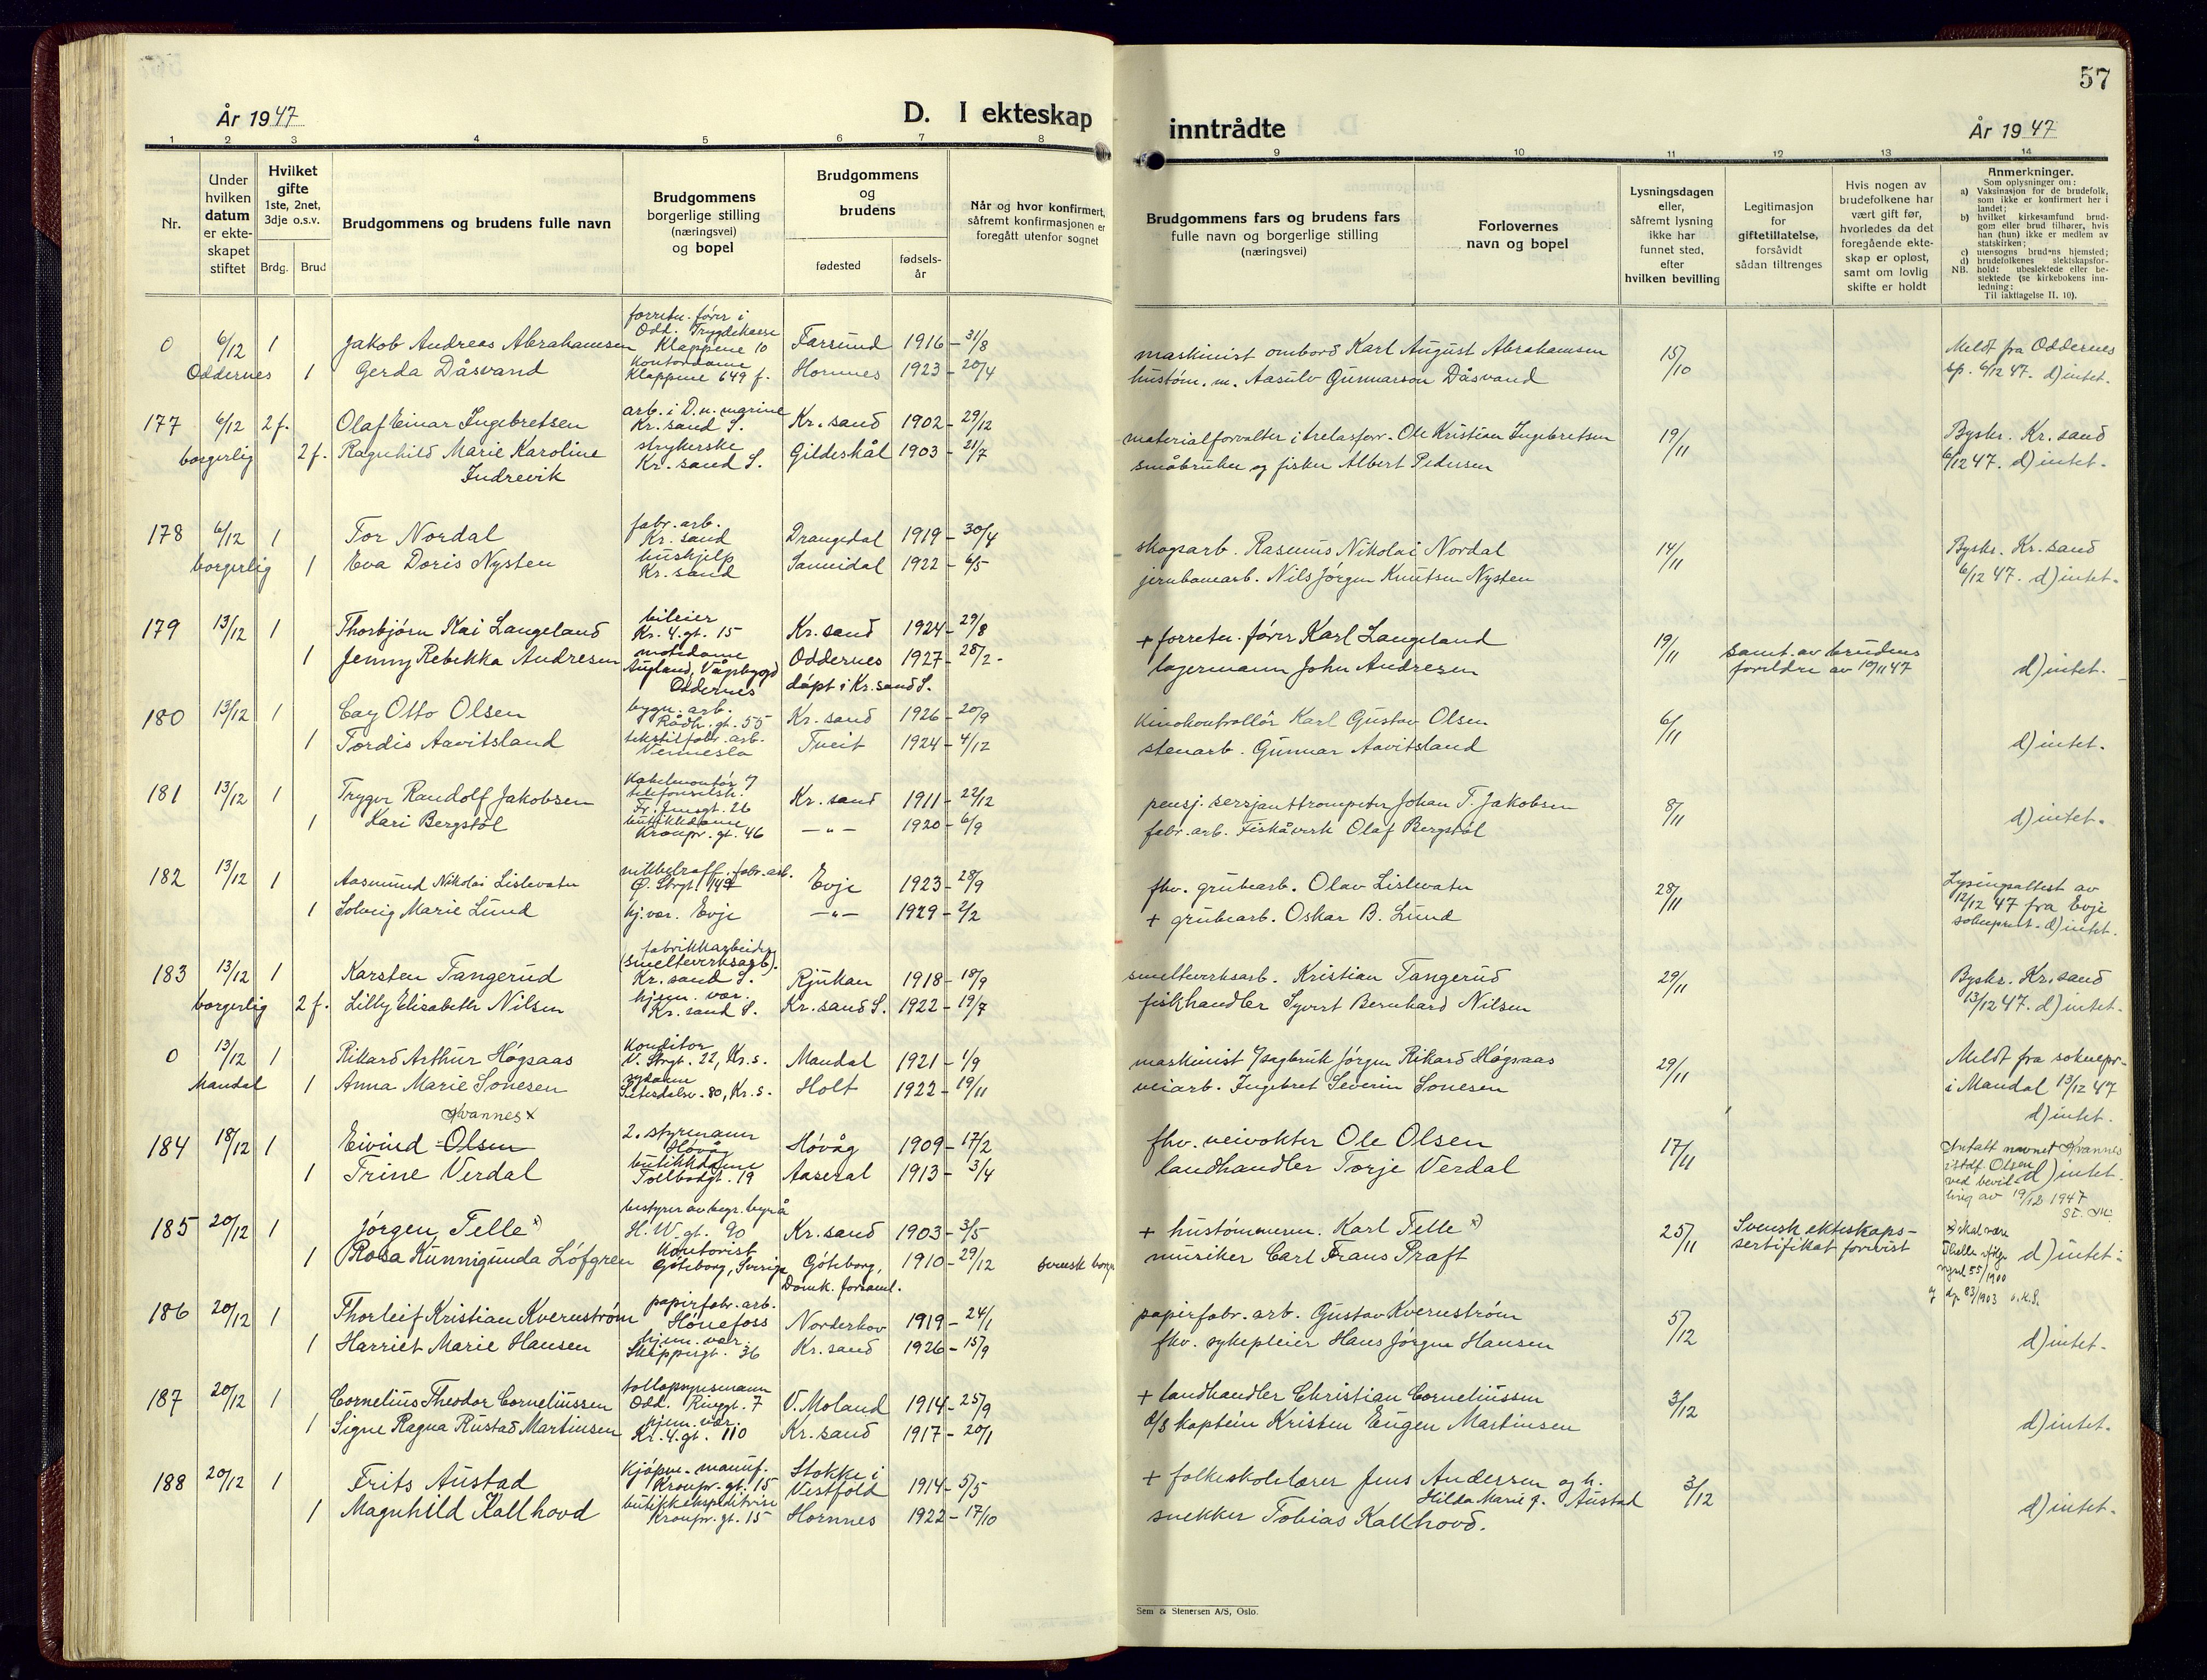 57
År 1947
D. I ekteskap
inntrådte
År 1947
1 2 3 4 5 6 7 8 9 10 11 12 13 14
Nr.
Under
hvilken
datum
er ekte-
skapet
stiftet
Hvilket
gifte
1ste, 2net,
3dje o.s.v.
Brdg. Brud
Brudgommens og brudens fulle navn
Brudgommens
borgerlige stilling
(næringsvei)
og bopel
Brudgommens
og
brudens
fødested
fødsels-
år
Når og hvor konfirmert,
såfremt konfirmasjonen er
foregått utenfor sognet
Brudgommens fars og brudens fars
fulle navn og borgerlige stilling
(næringsvei)
Forlovernes
navn og bopel
Lysningsdagen
eller,
såfremt lysning
ikke har
funnet sted,
efter
hvilken bevilling
Legitimasjon
for
giftetillatelse,
forsåvidt
sådan tiltrenges
Hvis nogen av
brudefolkene har
vært gift før,
hvorledes da det
foregående ekte-
skap er opløst,
samt om lovlig
skifte er holdt
Anmerkninger.
Som oplysninger om:
a) Vaksinasjon for de brudefolk,
som ikke er konfirmert her i
landet;
b) hvilket kirkesamfund brud-
gom eller brud tilhører, hvis
han (hun) ikke er medlem av
statskirken;
c) utensogns brudens hjemsted;
d) brudefolkenes slektskapsfor-
NB. hold: ubeslektede eller be-
slektede (se kirkebokens inn-
ledning:
Til iakttagelse II. 10).
forretn. fører i
Odd. Trygdekasse
0 6/12 1 Jakob Andreas Abrahamsen Klappene 10 Farsund 1916 - 31/8 maskinist ombord Karl August Abrahamsen 15/10 Meldt fra Oddernes
Oddernes 1 Gerda Dåsvand kontordame Klappene 649 f. Hornnes 1923 - 20/4 hustøm. m. Aasulv Gunnarson Dåsvand sp. 6/12 47. d) intet.
177 6/12 2 f. Olaf Einar Ingebretsen arb. i D. n. marine Kr. sand S. Kr. sand 1902 - 29/12 materialforvalter i trelasforr. Ole Kristian Ingebretsen 19/11 Byskr. Kr. sand
borgerlig 2 f. Ragnhild Marie Karoline strykerske Kr. sand S. Gildeskål 1903 - 21/7 småbruker og fisker Albert Pedersen 6/12 47. d) intet.
Indrevik
178 6/12 1 Tor Nordal fabr. arb. Kr. sand Drangedal 1919 - 30/4 skogsarb. Rasmus Nikolai Nordal 14/11 Byskr. Kr. sand
borgerlig 1 Eva Doris Nysten hushjelp Kr. sand Sannidal 1922 - 6/5 jernbanearb. Nils Jørgen Knutsen Nysten 6/12 47. d) intet.
179 13/12 1 Thorbjørn Kai Langeland bileier Kr. 4. gt. 15 Kr. sand 1924 - 29/8 + forretn. fører Karl Langeland 19/11 samt. av brudens
1 Jenny Rebekka Andresen motedame Augland, Vågsbygd Oddernes 1927 - 28/2 - lagermann John Andresen foreldre av 19/11 47 d) intet.
Oddernes døpt i Kr. sand S.
180 13/12 1 Cay Otto Olsen bygn. arb. Rådh. gt. 55 Kr. sand 1926 - 20/9 kinokontrollør Karl Gustav Olsen 6/11
1 Tordis Aavitsland tekstilfabr. arb. Vennesla Tveit 1924 - 4/12 stenarb. Gunnar Aavitsland d) intet.
181 13/12 1 Trygve Randolf Jakobsen kabelmontør v/ telefonselsk. Fr. Fransgt. 26 Kr. sand 1911 - 22/12 pensj. sersjanttrompeter Johan T. Jakobsen 8/11
1 Kari Bergstøl butikkdame Kronpr. gt. 46 — " — 1920 - 6/9 fabr. arb. Fiskåverk Olaf Bergstøl d) intet.
182 13/12 1 Aasmund Nikolai Lislevatn nikkelraff. fabr. arb. Ø. Strgt. 142 Evje 1923 - 28/9 fhv. grubearb. Olav Lislevatn 28/11 Lysingsattest av
1 Solveig Marie Lund hj. vær. Evje — " — 1929 - 2/2 + grubearb. Oskar B. Lund 12/12 47 fra Evje
sokneprest. d) intet.
183 13/12 1 Karsten Tangerud fabrikkarbeider (smelteverksarb). Kr. sand S. Rjukan 1918 - 18/9 smelteverksarb. Kristian Tangerud 29/11 Byskr. Kr. sand
borgerlig 2 f. Lilly Elisabeth Nilsen hjem. vær. Kr. sand S. Kr. sand S. 1922 - 19/7 fiskhandler Syvert Bernhard Nilsen 13/12 47. d) intet.
0 13/12 1 Rikard Arthur Høgsaas konditor V. Strgt. 22, Kr. s. Mandal 1921 - 1/9 maskinist v/sagbruk Jørgen Rikard Høgsaas 29/11 Meldt fra soknepr.
Mandal 1 Anna Marie Sonesen sydame Setesdalsv. 80, Kr. s. Holt 1922 - 19/11 veiarb. Ingebret Severin Sonesen i Mandal 13/12 47
d) intet.
Kvannes x
184 18/12 1 Eivind Olsen 2. styrmann Høvåg Høvåg 1909 - 17/2 fhv. veivokter Ole Olsen 17/11 Antatt navnet Kvannes
1 Trine Verdal butikkdame Tollbodgt. 19 Aaseral 1913 - 3/4 landhandler Torje Verdal istdf. Olsen d) intet.
ved bevil-
ling av 19/12 1947
185 20/12 1 Jørgen Telle x) bestyrer av begr. byrå H. W. gt. 90 Kr. sand 1903 - 3/5 + hustømmerm. Karl Telle x) 25/11 Svensk ekteskaps- x) skal være
1 Rosa Kunnigunda Löfgren kontorist Göteborg, Sverige Göteborg, 1910 - 29/12 svensk borger musiker Carl Frans Praft sertifikat forevist Thelle ifølge d) intet.
Domk. forsaml. 55/1900
83/1903
186 20/12 1 Thorleif Kristian Kvernstrøm papirfabr. arb. Hønefoss Norderhov 1919 - 24/1 papirfabr. arb. Gustav Kvernstrøm 5/12
1 Harriet Marie Hansen hjem. vær. Skippergt. 36 Kr. sand 1926 - 15/9 fhv. sykepleier Hans Jørgen Hansen d) intet.
187 20/12 1 Cornelius Theodor Corneliussen tollopsynsmann Odd. Ringgt. 7 V. Moland 1914 - 25/9 + landhandler Christian Corneliussen 3/12
1 Signe Ragna Rustad Martinsen hjem. vær. Kr. 4. gt. 110 Kr. sand 1917 - 20/1 d/s kaptein Kristen Eugen Martinsen d) intet.
188 20/12 1 Frits Austad kjøpm. manuf. Kronpr. gt. 15 Stokke i Vestfold 1914 - 5/5 + folkeskolelærer Jens Andersen og h. 3/12
Hilda Marie f. Austad
1 Magnhild Kallhovd butikkekspeditrise Kronpr. gt. 15 Hornnes 1922 - 17/10 snekker Tobias Kallhovd. d) intet.
Sem & Stenersen A/S, Oslo.